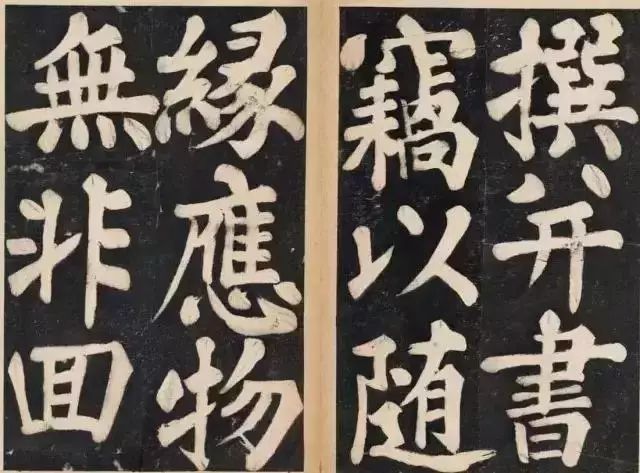 撰并書
竊以随
緣應物
無非回